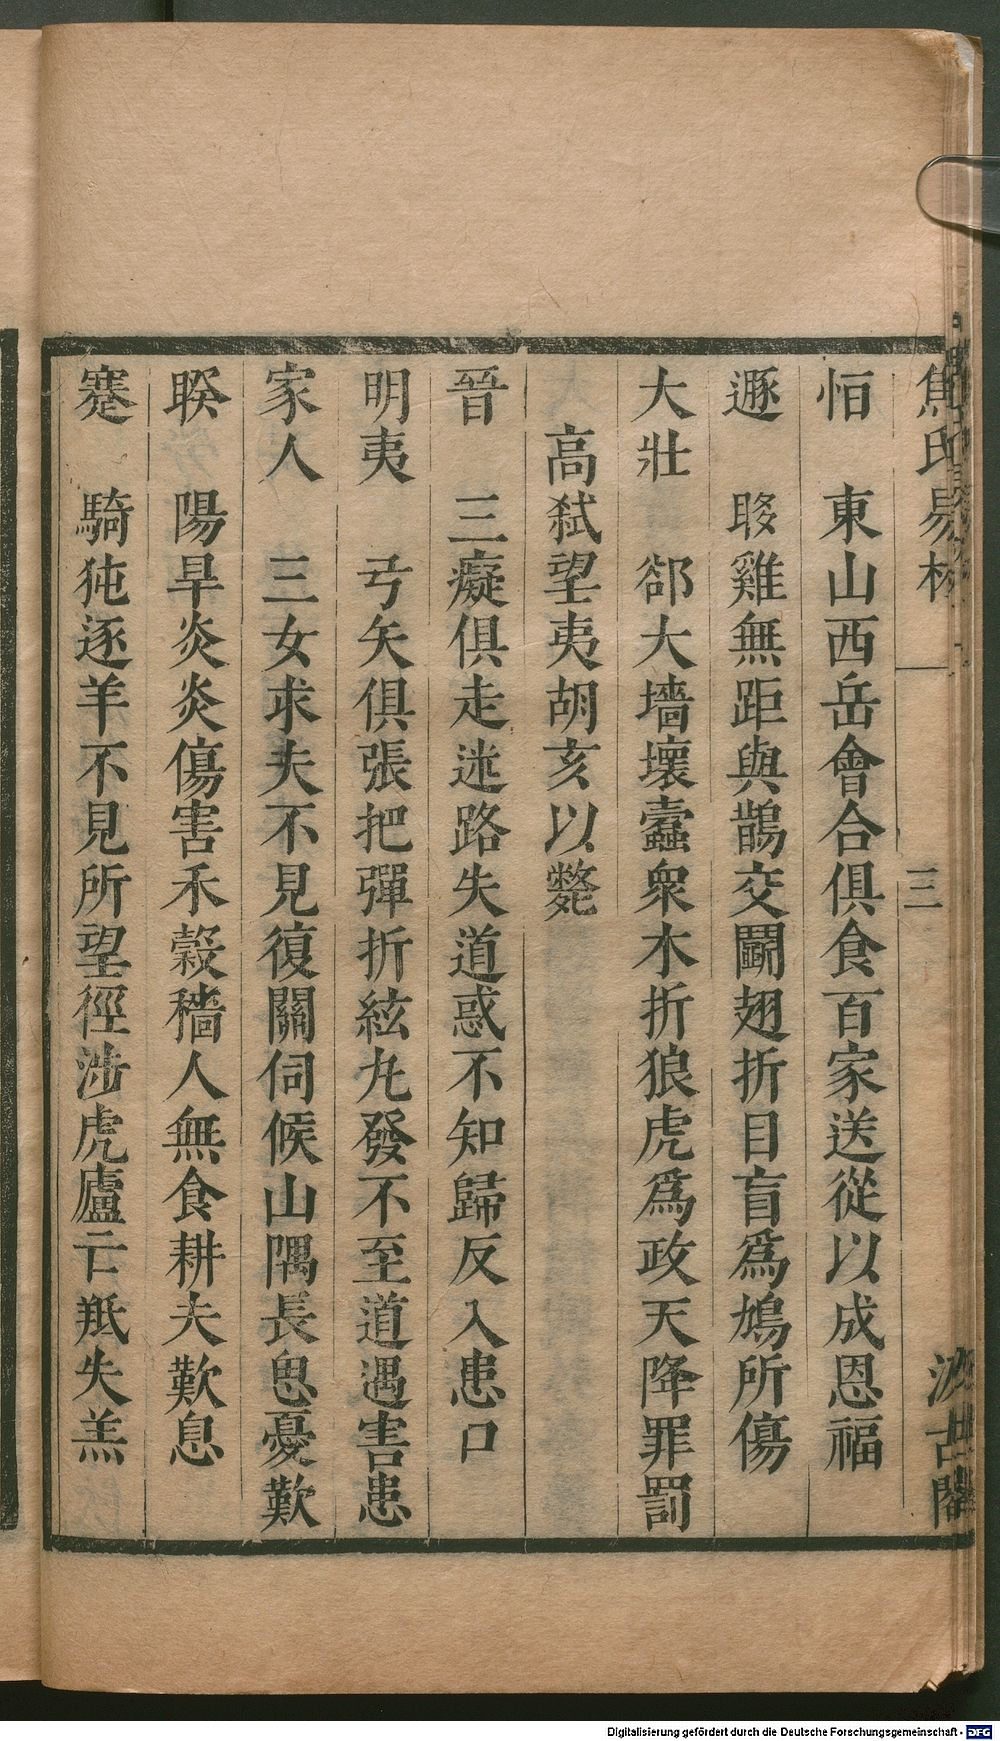 焦氏易林
三
汲古閣
恒　東山西岳會合俱食百家送從以成恩福
遯　䝘雞無距與鵲交鬭翅折目盲爲鳩所傷
大壯　郤大墻壞蠹衆木折狼虎爲政天降罪罰
高弑望夷胡亥以斃
晉　三癡俱走迷路失道惑不知歸反入患口
明夷　弓矢俱張把彈折絃丸發不至道遇害患
家人　三女求夫不見復關伺候山隅長思憂歎
睽　陽旱炎炎傷害禾穀穡人無食耕夫歎息
蹇　騎㹠逐羊不見所望徑涉虎廬亡羝失羔
Digitalisierung gefördert durch die Deutsche Forschungsgemeinschaft - DFG